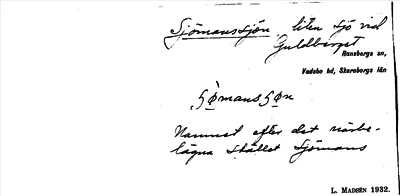 Sjömanssjön, liten sjö vid
Guldberget
Ransbergs sn,
Vadsbo hd, Skaraborgs län
Namnet efter det närbe-
lägna stället Sjömans
L. MADSÉN 1932.